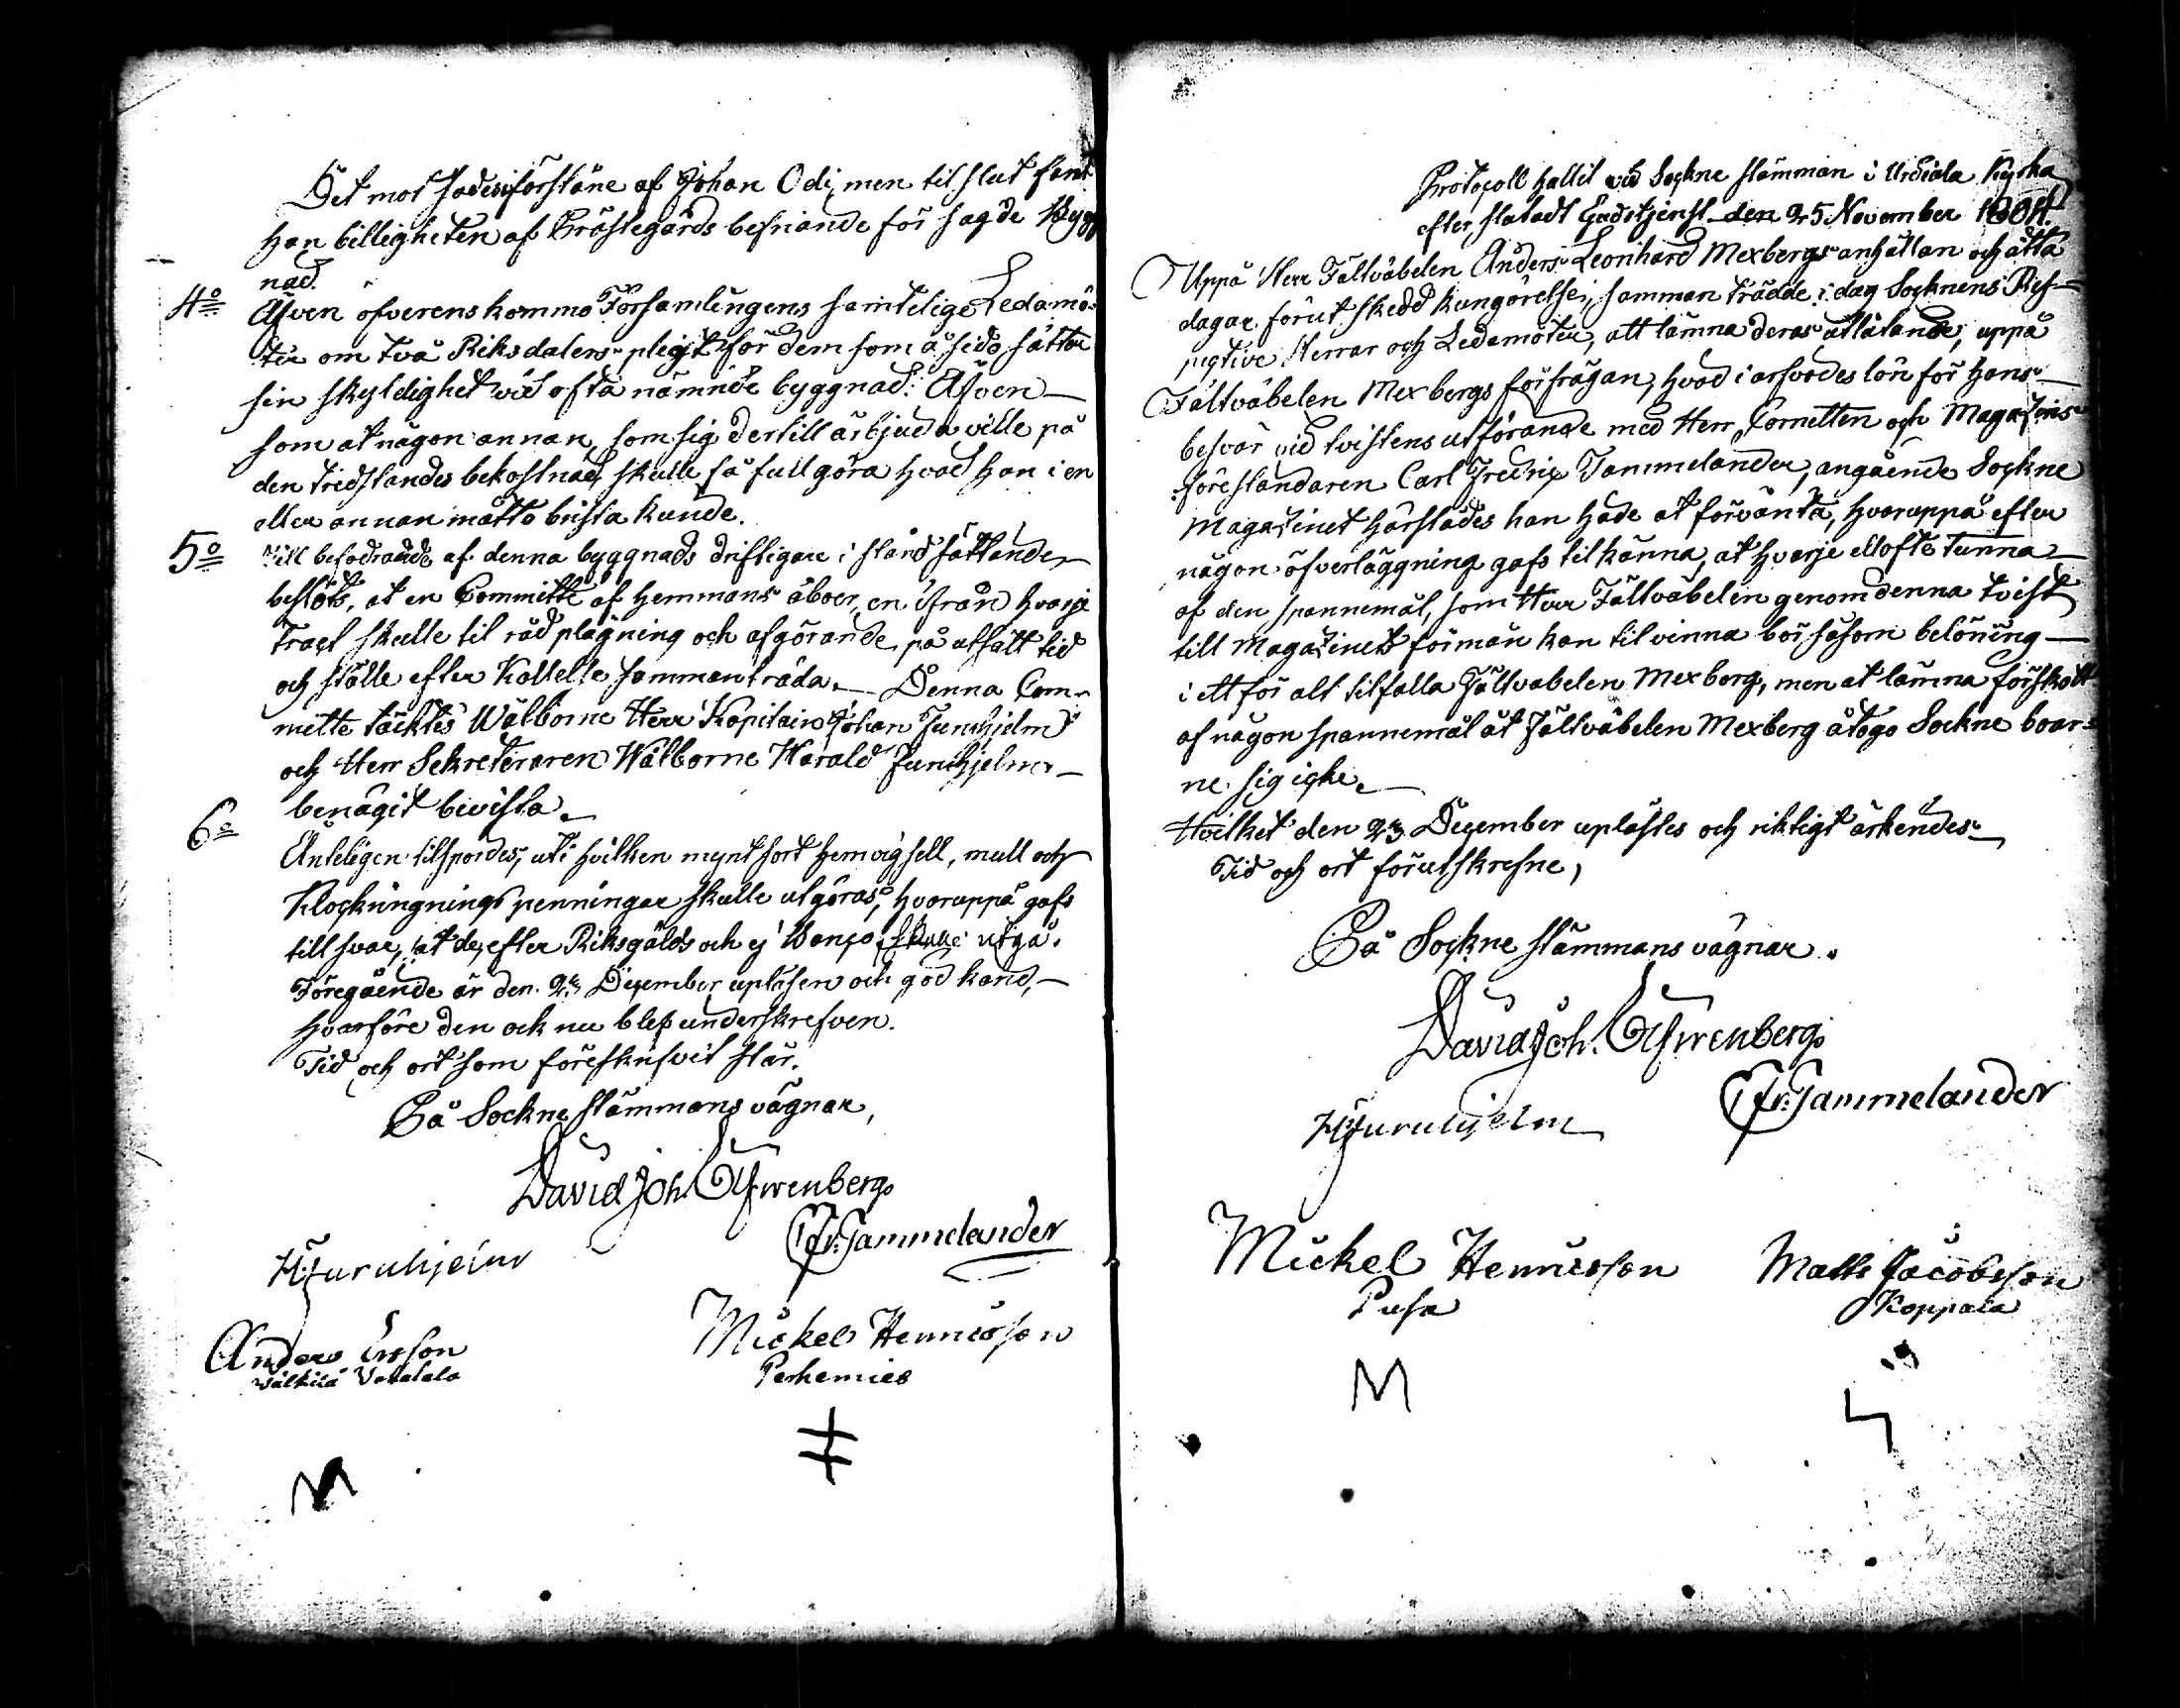 Det mot sades i förstone af Johan Odi, men til slut fant
han billigheten af Prästegårds befriande för sagde Bygg
nad.
4º Äfven öfverenskommo Församlingens samtelige Ledamö-
ter om två Riksdalers plegt för dem som å sido sätter
sin skyldighet vid ofta nämnde byggnad. Äfven
som at någon annan, som sig dertill ärbjuda ville på
den tredskandes bekostnad, skulle få fullgöra hvad han i en
eller annan måtto brista kunde.
5º Till befodrande af denna byggnads driftigare i stånd sättande
beslöts, at en Committé af Hemmans åboer, en ifrån hvarje
Tract skulle til råd plägning och afgörande på utsatt tid
och ställe efter Kallelse sammanträda. Denna Com-
mitte täcktes Wälborne Herr Kapitain Johan Furuhjelm
och Herr Sekreteraren Wälborne Harald Furuhjelm
benägit bevista.
6º Änteligen tilspordes, uti hvilken mynt sort hemvigsell, mull och
Klockringnings penningar skulle utgöras, hvaruppå gafs
till svar, at de efter Riksgälds och ej Banco skulle utgå.
Föregående är den 23 December upläsen och god känd,
hvarföre den ock nu blef underskrefven.
Tid och ort som föreskrifvit står.
På Sockne stämmans vägnar,
David Joh. Elfwenberg
HFuruhjelm
CFr: Tammelander
Anders Ersson
Wälkilä Vahalala
Mickel Henricsson
Perhemies
Protocoll hallit vid Sockne stämman i Urdiala Kyrka
efter slutadt Gudstjenst den 25 November 1804.
Uppå Herr Fältväbelen Anders Leonhard Mexbergs anhållan och åtta
dagar förut skedd kungörelse, samman trädde i dag Socknens Res-
pective Herrar och Ledamöter, att lämna deras utlåtande, uppå
Fältväbelen Mexbergs förfrågan, hvad i arfvodes lön för hans
besvär vid tvistens utförande med Herr Cornetten och Magazins
föreståndaren Carl Fredric Tammelander, angående Sockne
Magazinet härstädes han hade at förvänta, hvaruppå efter
någon öfverläggning gafs tilkänna, at hvarje ellofte tunna
af den spannemål, som Herr Fältväbelen genom denna tvist
till Magazinets förmån kan tilvinna bör såsom belöning
i ett för alt tilfalla Fältväbelen Mexberg, men at lämna förskott
af någon spannemål åt Fältväbelen Mexberg åtogo Sockne boar-
ne sig icke.
Hvilket den 23 December uplästes och riktigt ärkendes.
Tid och ort förutskrefne,
På Sockne stämmans vägnar.
David Joh. Elfwenberg
HFuruhjelm
CFr: Tammelander
Mickel Henricsson
Pusa
Matts Jacobsson
Koppala
M